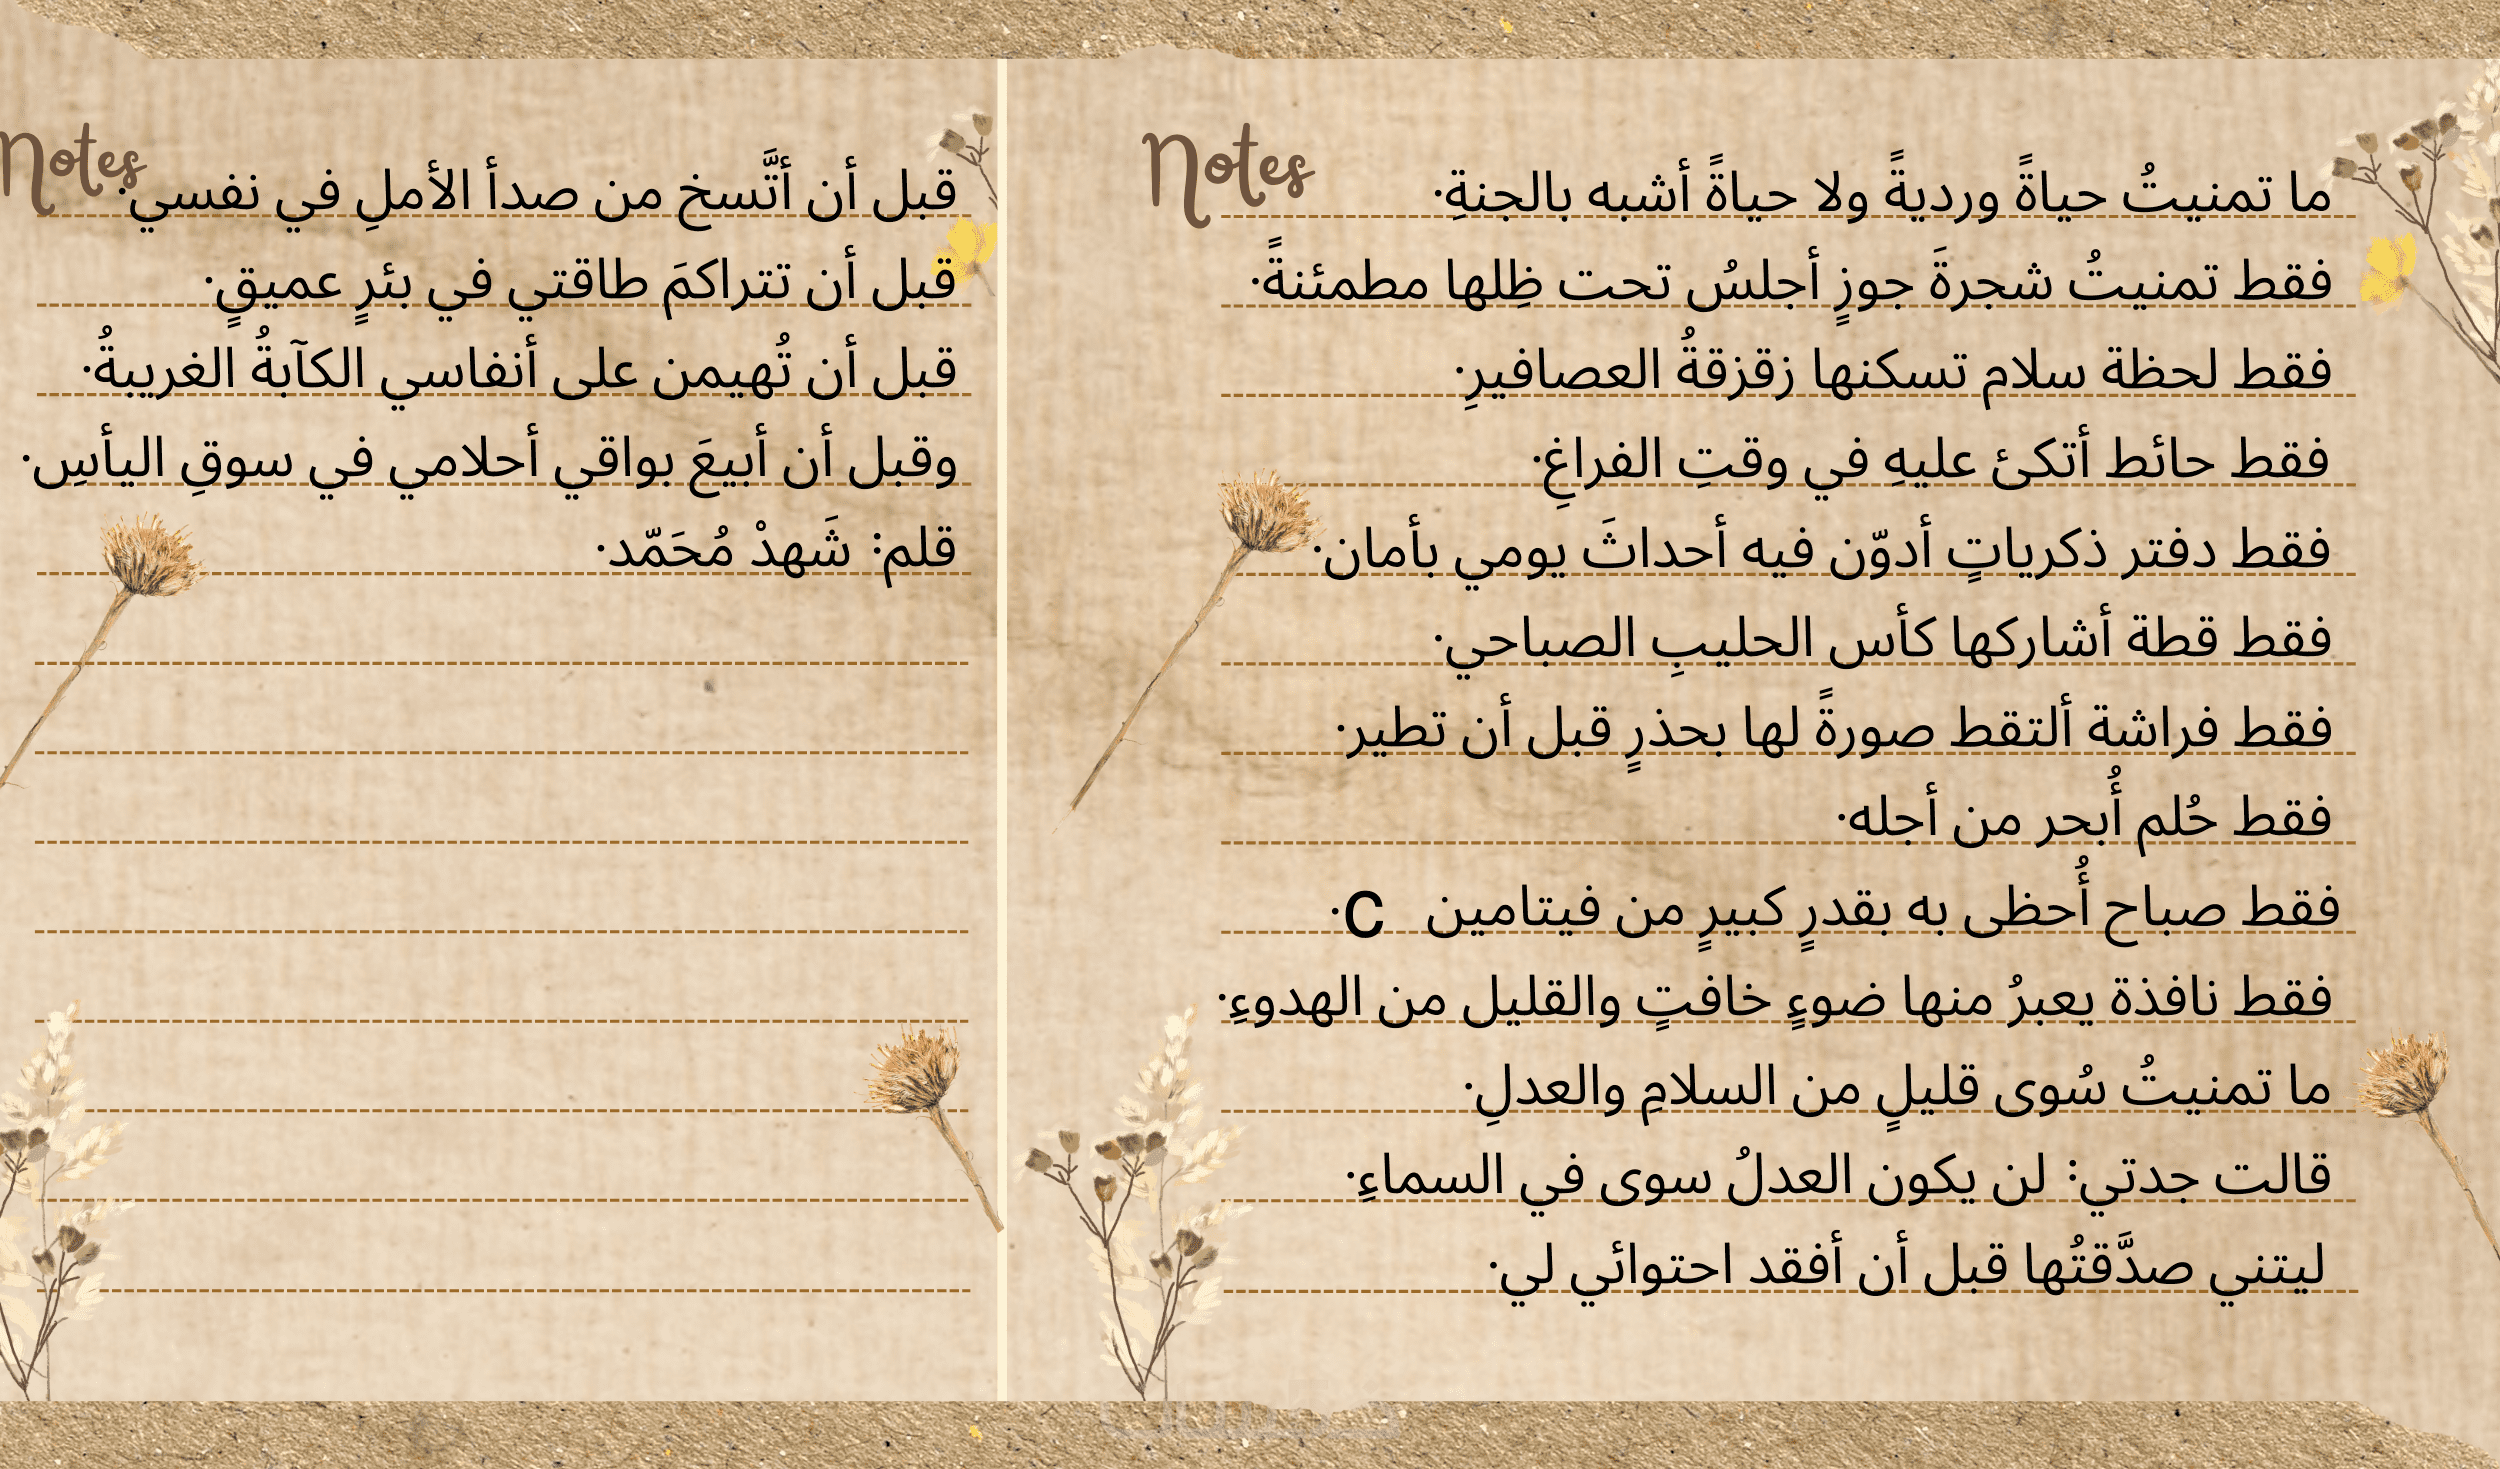 Notes
ما تمنيتُ حياةً ورديةً ولا حياةً أشبه بالجنةِ.
فقط تمنيتُ شجرةَ جوزٍ أجلسُ تحت ظِلها مطمئنةً.
فقط لحظة سلام تسكنها زقزقةُ العصافيرِ.
فقط حائط أتكئ عليهِ في وقتِ الفراغِ.
فقط دفتر ذكرياتٍ أدوّن فيه أحداثَ يومي بأمان.
فقط قطة أشاركها كأس الحليبِ الصباحي.
فقط فراشة ألتقط صورةً لها بحذرٍ قبل أن تطير.
فقط حُلم أُبحر من أجله.
فقط صباح أُحظى به بقدرٍ كبيرٍ من فيتامين C.
فقط نافذة يعبرُ منها ضوءٍ خافتٍ والقليل من الهدوءِ.
ما تمنيتُ سُوى قليلٍ من السلامِ والعدلِ.
قالت جدتي: لن يكون العدلُ سوى في السماءِ.
ليتني صدَّقتُها قبل أن أفقد احتوائي لي.
Notes
قبل أن أتَّسخ من صدأ الأملِ في نفسي.
قبل أن تتراكمَ طاقتي في بئرٍ عميقٍ.
قبل أن تُهيمن على أنفاسي الكآبةُ الغريبةُ.
وقبل أن أبيعَ بواقي أحلامي في سوقِ اليأسِ.
قلم: شَهدْ مُحَمّد.